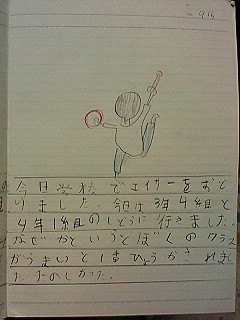 今日学校でエイサーをおど
りました。今日は3年4組と
4年1組のしどうに行きました。
なぜかというとぼくのクラス
がうまいとはひょうかされまし
た。たのしかった。